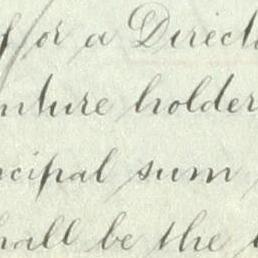 or a Direct
nture holder
ncipal sum
hall be the